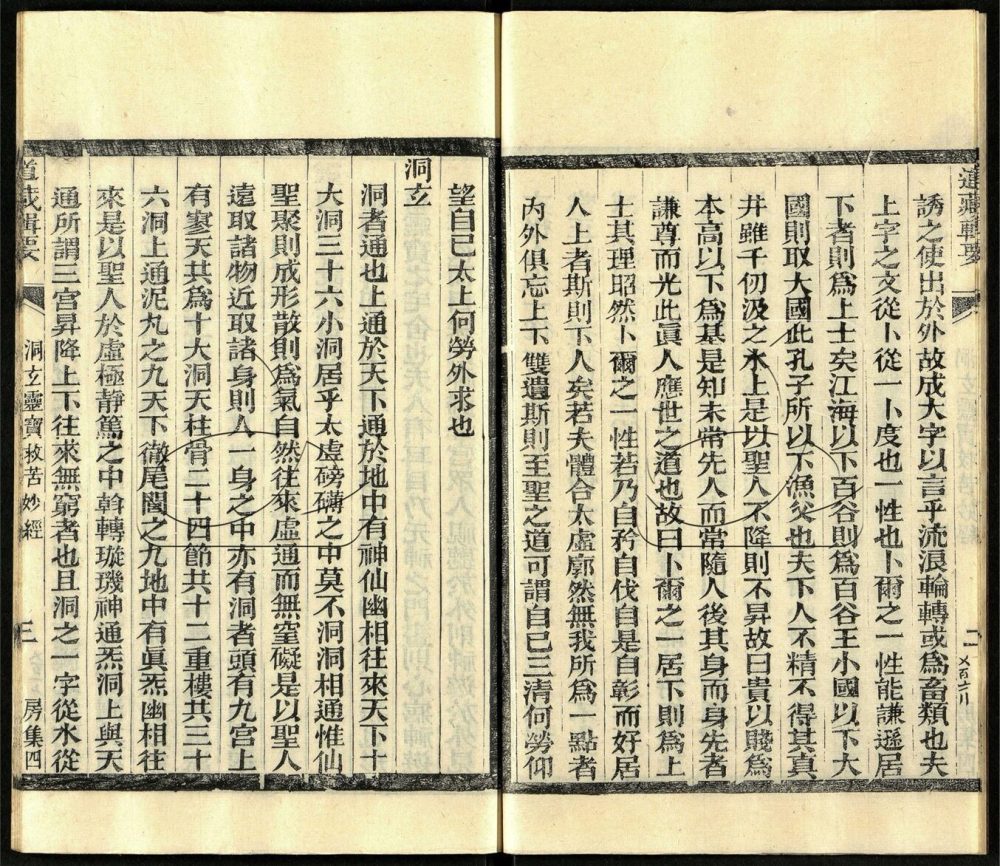 道藏輯要
二
誘之使出於外故成大字以言乎流浪輪轉或爲畜類也夫
上字之文從卜從一卜度也一性也卜爾之一性能謙遜居
下者則爲上士矣江海以下百谷則爲百谷王小國以下大
國則取大國此孔子所以下漁父也夫下人不精不得其真
井雖千仞汲之水上是以聖人不降則不昇故曰貴以賤爲
本高以下爲基是知未常先人而常隨人後其身而身先者
謙尊而光此眞人應世之道也故曰卜爾之一居下則爲上
士其理昭然卜爾之一性若乃自矜自伐自是自彰而好居
人上者斯則下人矣若夫體合太虛廓然無我所爲一點者
內外俱忘上下雙遺斯則至聖之道可謂自己三清何勞仰
望自己太上何勞外求也
洞玄
洞者通也上通於天下通於地中有神仙幽相往來天下十
大洞三十六小洞居乎太虛磅礴之中莫不洞洞相通惟仙
聖聚則成形散則爲氣自然往來虛通而無窒礙是以聖人
遠取諸物近取諸身則人一身之中亦有洞者頭有九宮上
有寥天共爲十大洞天柱骨二十四節共十二重樓共三十
六洞上通泥丸之九天下徹尾閭之九地中有眞炁幽相往
來是以聖人於虛極静篤之中斡轉璇璣神通炁洞上與天
通所謂三宫昇降上下往來無窮者也且洞之一字從水從
道藏輯要
洞玄靈寶救苦妙經
三
房集四